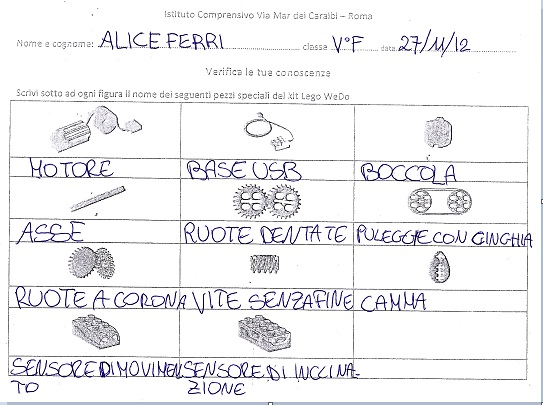 Istituto Comprensivo Via Mar dei Caraibi – Roma
Nome e cognome: ALICE FERRI classe V°F data 27/11/12
Verifica le tue conoscenze
Scrivi sotto ad ogni figura il nome dei seguenti pezzi speciali del kit Lego WeDo
MOTORE BASE USB BOCCOLA
ASSE RUOTE DENTATE PULEGGIE CON CINGHIA
RUOTE A CORONA VITE SENZA FINE CAMMA
SENSORE DI MOVIMEN SENSORE DI INCLINA-
TO ZIONE